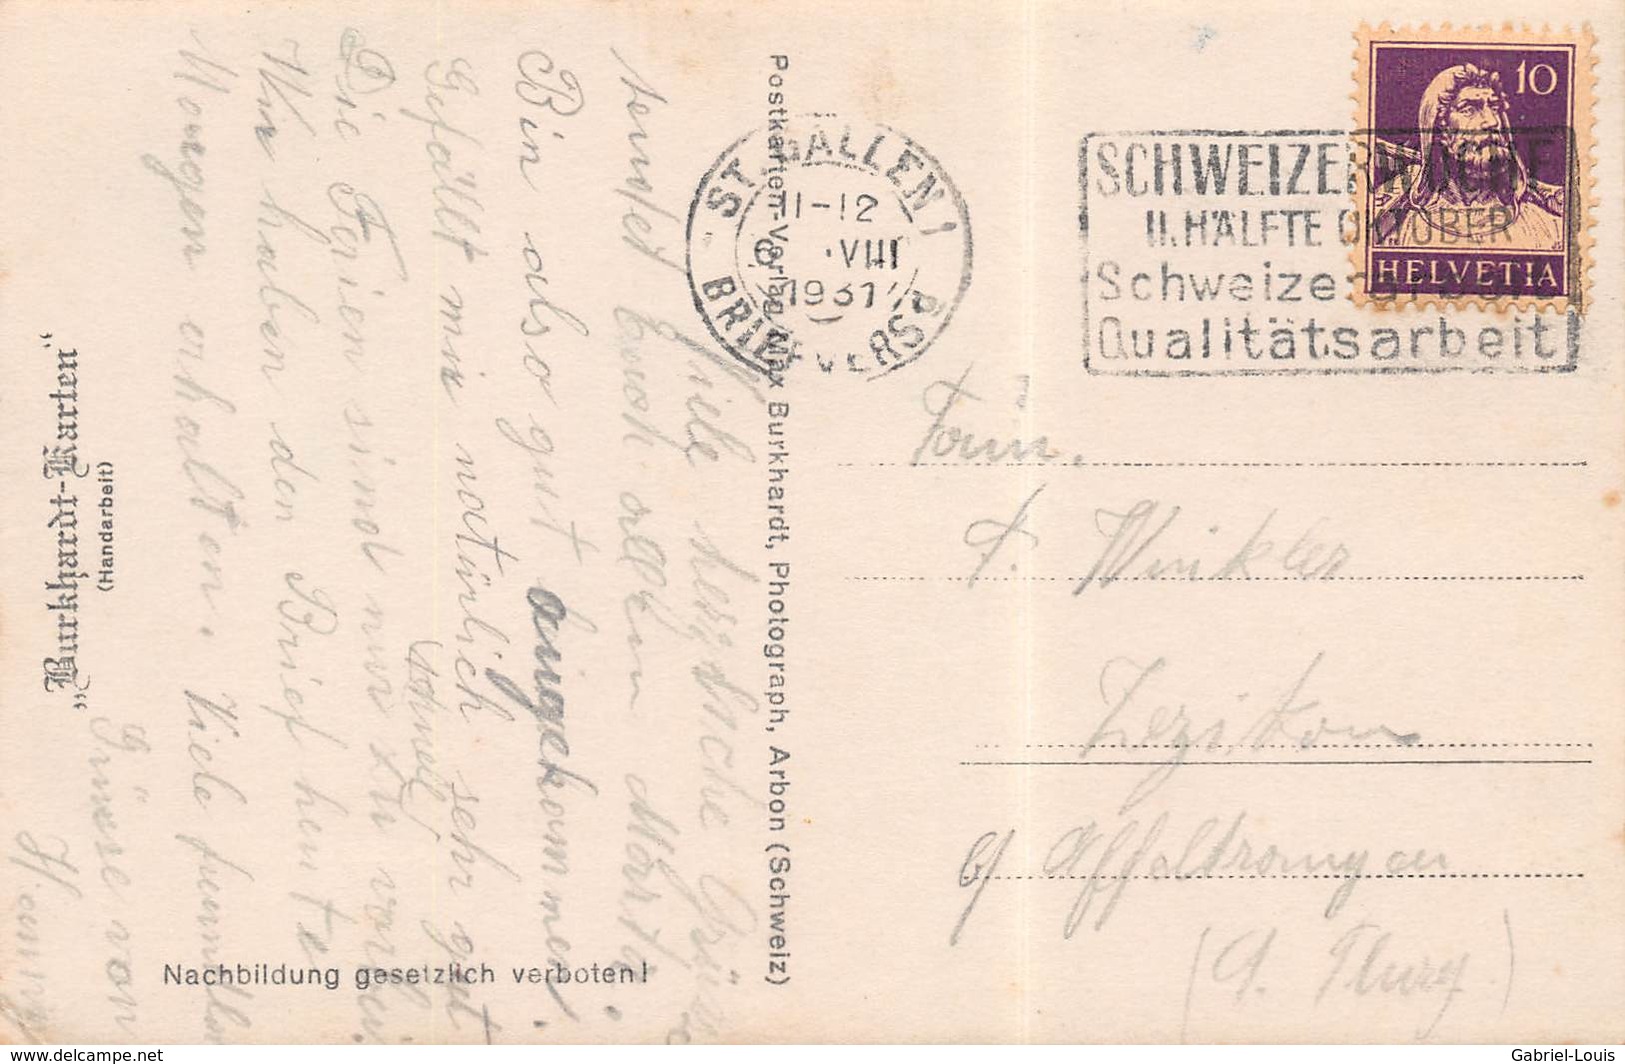 Viele herzliche Grüsse
sendet Euch allen Marta.
Bin also gut angekommen.
Gefällt mir natürlich sehr gut
Die Ferien sind nur zu
schnell
vorbei
Wir haben den Brief heute
Morgen erhalten. Viele
Grüsse von
„Burkhardt-Karten“
(Handarbeit)
Nachbildung gesetzlich verboten!
Postkarten-Verlag Max Burkhardt, Photograph, Arbon (Schweiz)
ST. GALLEN 1
11-12
8. VIII
1931
BRIEFVERS.
SCHWEIZERWOCHE
II. HÄLFTE OKTOBER
Schweizerarbeit
Qualitätsarbeit
10
HELVETIA
Fam.
Winkler
Zezikon
b/ Affeltrangen
(Thurg.)
www.delcampe.net
Gabriel-Louis